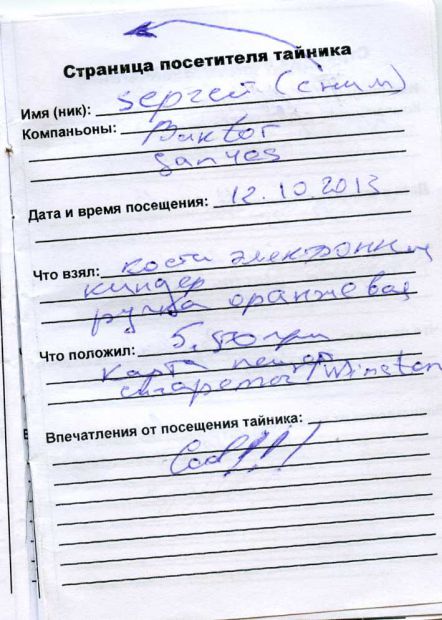 Страница посетителя тайника
Имя (ник): Sергей (с ним)
Компаньоны: Виktor
Sanyos
Дата и время посещения: 12.10.2013
Что взял: кости электронные
киндер
ручка оранжевая
Что положил: 5,50 грн
карта
сигареты Winston
Впечатления от посещения тайника: